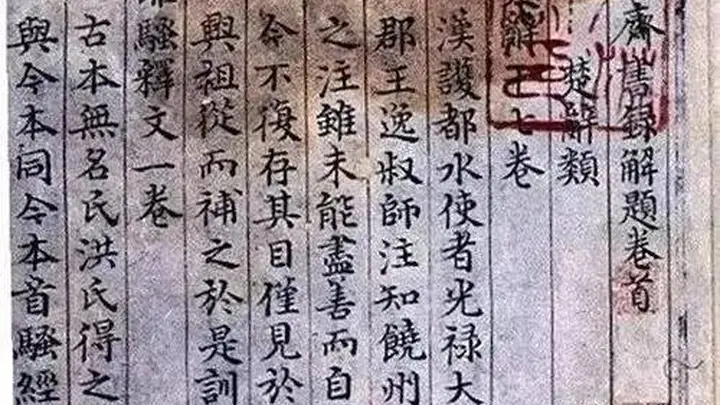 齋書錄解題卷首
楚辭類
辭十七卷
漢護都水使者光禄大
郡王逸叔師注知饒州
之注雖未能盡善而自
今不復存其目僅見於
興祖從而補之於是訓
騷釋文一卷
古本無名氏洪氏得之
與今本同今本音騷經